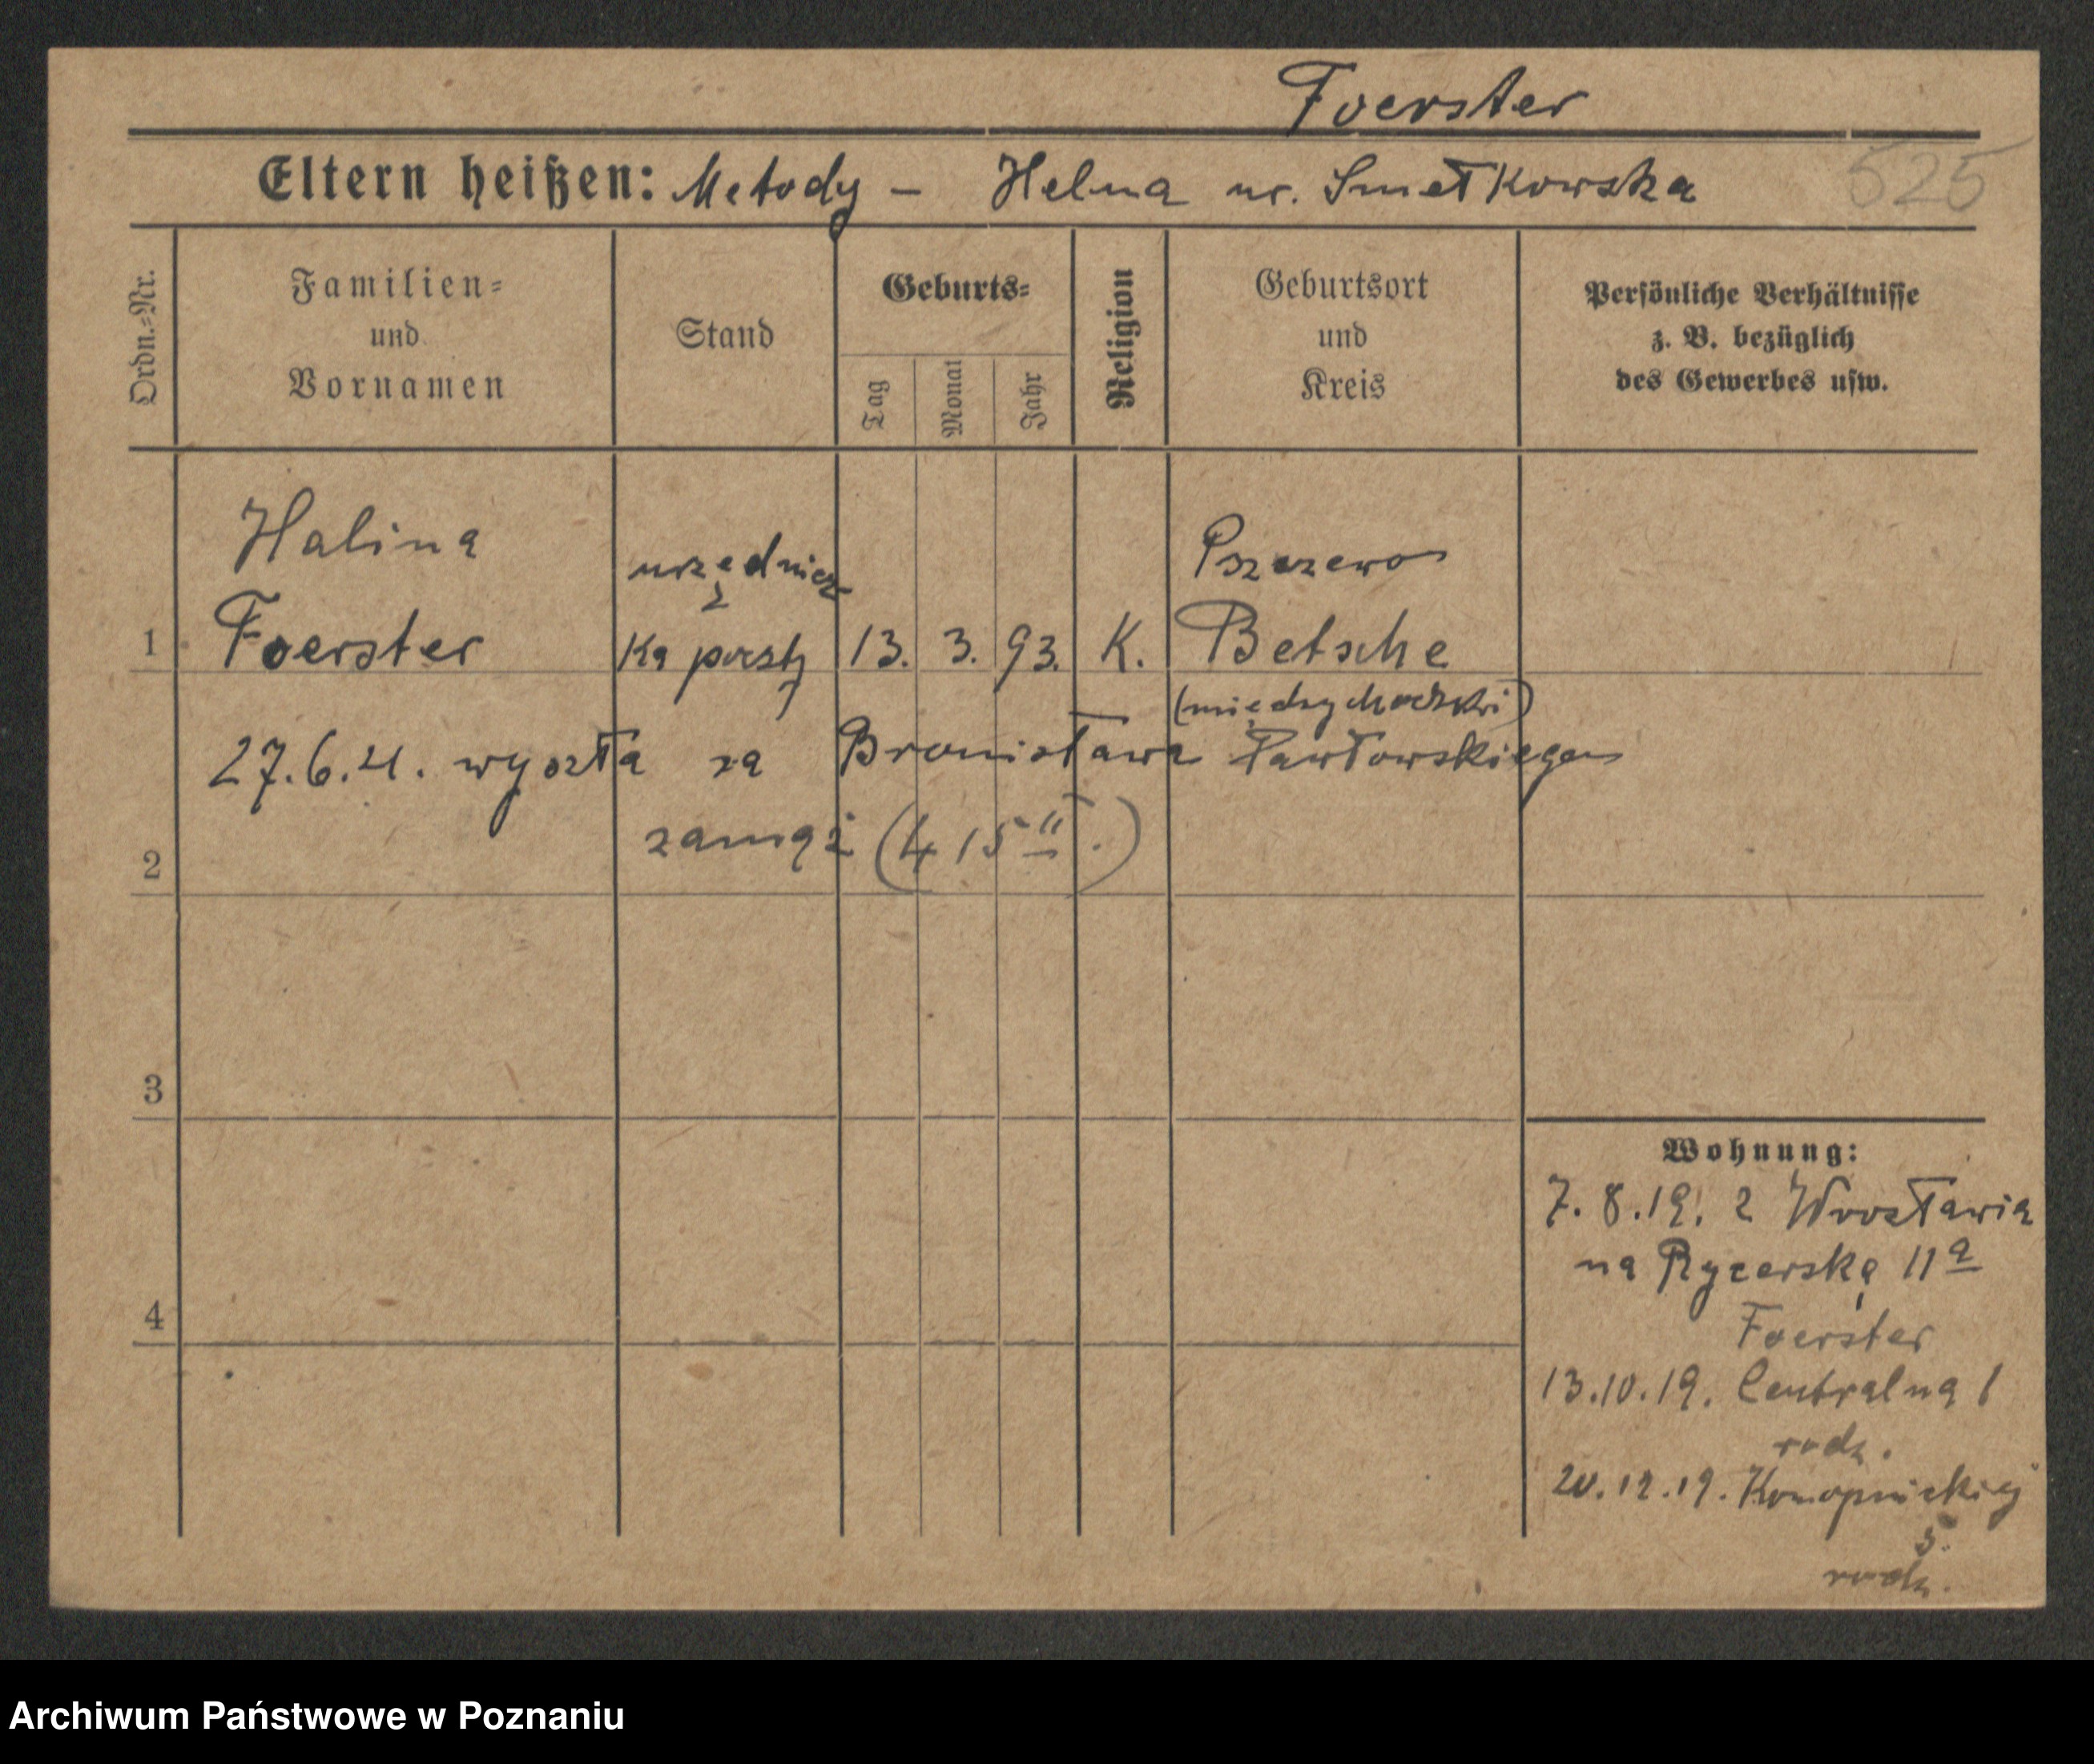 Foerster
Eltern heißen: Metody - Helena ur. Smetkowska
525
Ordn.-Nr.
Familien-
und
Vornamen
Stand
Geburts-
Tag
Monat
Jahr
Religion
Geburtsort
und
Kreis
Persönliche Verhältnisse
z. B. bezüglich
des Gewerbes usw.
Halina
urzędnicz
Pszczewo
1 Foerster ka poczty 13. 3. 93. K. Betsche
(międzychodzki)
27.6.21. wyszła za Bronisława Pawłowskiego
zamąż (415 II.)
2
3
Wohnung:
7.8.19. z Wrocławia
na Rycerską 11a
4
Foerster
13.10.19. Centralna 1
rodz.
20.12.19. Konopnickiej
5.
rodz.
Archiwum Państwowe w Poznaniu